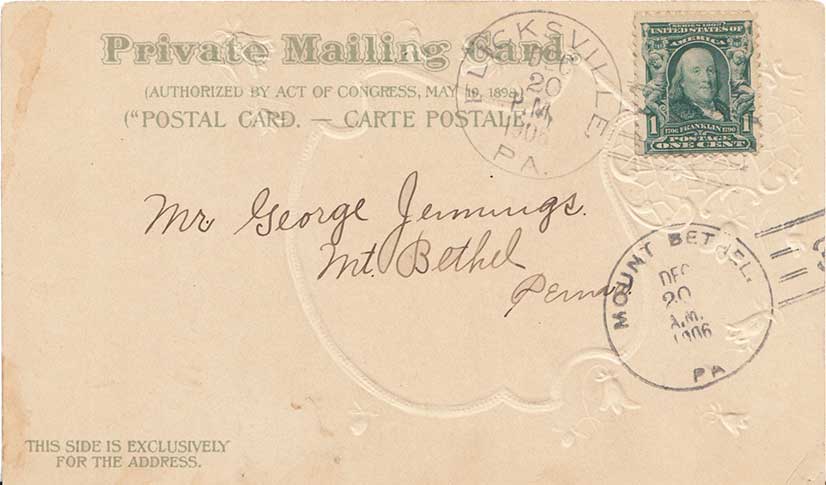 Private Mailing Card.
(AUTHORIZED BY ACT OF CONGRESS, MAY 19, 1898.)
("POSTAL CARD. — CARTE POSTALE")
FLICKSVILLE
DEC
20
P.M.
1906
PA.
SERIES 1902
UNITED STATES OF
AMERICA
1 1706 FRANKLIN 1790 1
POSTAGE
ONE CENT
Mr George Jennings.
Mt. Bethel
Penna.
MOUNT BETHEL.
DEC
20
A.M.
1906
PA
THIS SIDE IS EXCLUSIVELY
FOR THE ADDRESS.